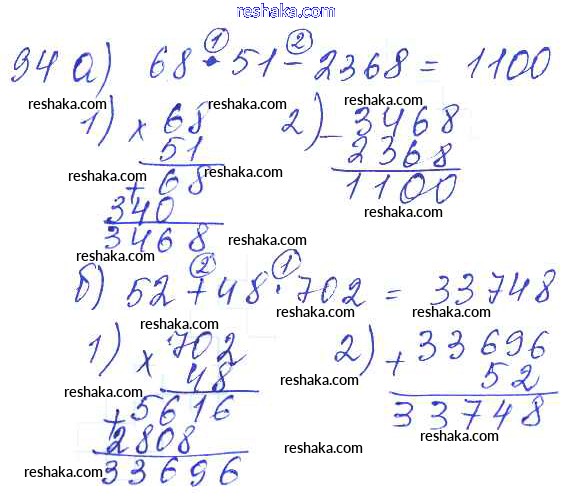 reshaka.com
94 а) 68 · 51 − 2368 = 1100
① ②
reshaka.com reshaka.com reshaka.com
1) × 68 2) − 3468
51 2368
+ 68 1100
340
3468
reshaka.com reshaka.com reshaka.com reshaka.com
б) 52 + 48 · 702 = 33748
② ①
reshaka.com reshaka.com
1) × 702 2) + 33696
48 52
+ 5616 33748
2808
33696
reshaka.com reshaka.com reshaka.com reshaka.com reshaka.com reshaka.com